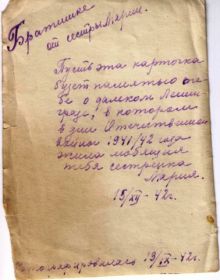 Братишке
от сестры Марии.
Пусть эта карточка
будет памятью о те-
бе о далком Ленин-
граде, в котором
в дни Отечественной
войны 1941/42 года
жила любящая
тебя сестренка
Мария.
15/XII - 42г.
19/IX - 42г.